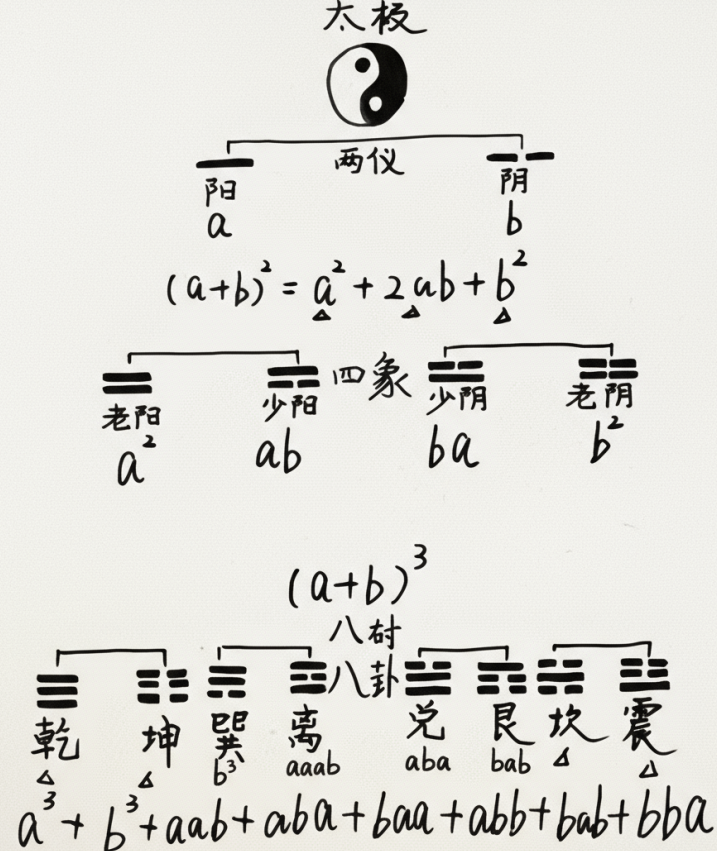 太极
两仪
阳 阴
a b
(a+b)² = a² + 2ab + b²
四象
老阳 少阳 少阴 老阴
a² ab ba b²
(a+b)³
八卦
乾 坤 巽 离 兑 艮 坎 震
b³ aaab aba bab
a³ + b³ + aab + aba + baa + abb + bab + bba